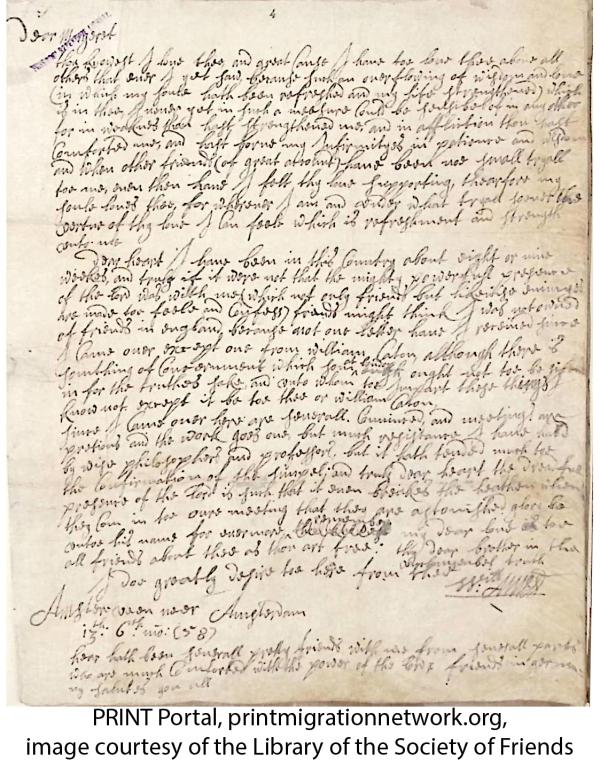 4
Dear Margret
the Lovest I love thee and great Cause I have toe love thee above all
others that ever I yet saw, because such an overflowing of wisdom and love
(in which my soule hath been refreshed and my life strengthened) which
is in thee, I never yet in such a measure Could be sensible of in any other
for in weaknes thou hast strengthened me, and in affliction thou hast
Comforted me, and hast borne my Infirmityes in patience and wisdom
and when other friends (of great account) have been noe small tryall
toe me, even then have I felt thy love supporting, thearfore my
soule loves thee, for wherever I am and under what tryall soever the
vertue of thy love I Can feele which is refreshment and strength
unto me
Dear heart I have been in this Country about eight or nine
weekes, and truly if it were not that the mighty powerfull presence
of the Lord was with me (which not only friends but likewise enimyes
are made toe feele and Confess) friends might think I was not owned
of friends in england, because not one letter have I received since
I Came over except one from william Caton, although there is
somthing of Government which ought not toe be
in for the truthes sake, and unto whom toe Impart these things I
know not except it be toe thee or william Caton,
since I Came over here are severall Convinced, and meetings are
pretious and the work goes one, but much resistance I have had
by wise philosophers and professors, but it hath tended much toe
the Confirmation of the simpel; and truly dear heart the dreadful
presence of the Lord is such that it even the heathen when
they Com in toe oure meeting that they are astonished, glory be
untoe his name for evermore, my dear love is toe
all friends about thee as thou art free. thy dear brother in the
unchangabel truth
I doe greatly desire toe here from thee Will: Ames
Amsterveen neer Amsterdam
13th 6th mo: (58)
hear hath been severall pretty friends with me from severall parts
who are much Comforted with the power of the Lord friends in germa
ny salutes you all
PRINT Portal, printmigrationnetwork.org,
image courtesy of the Library of the Society of Friends